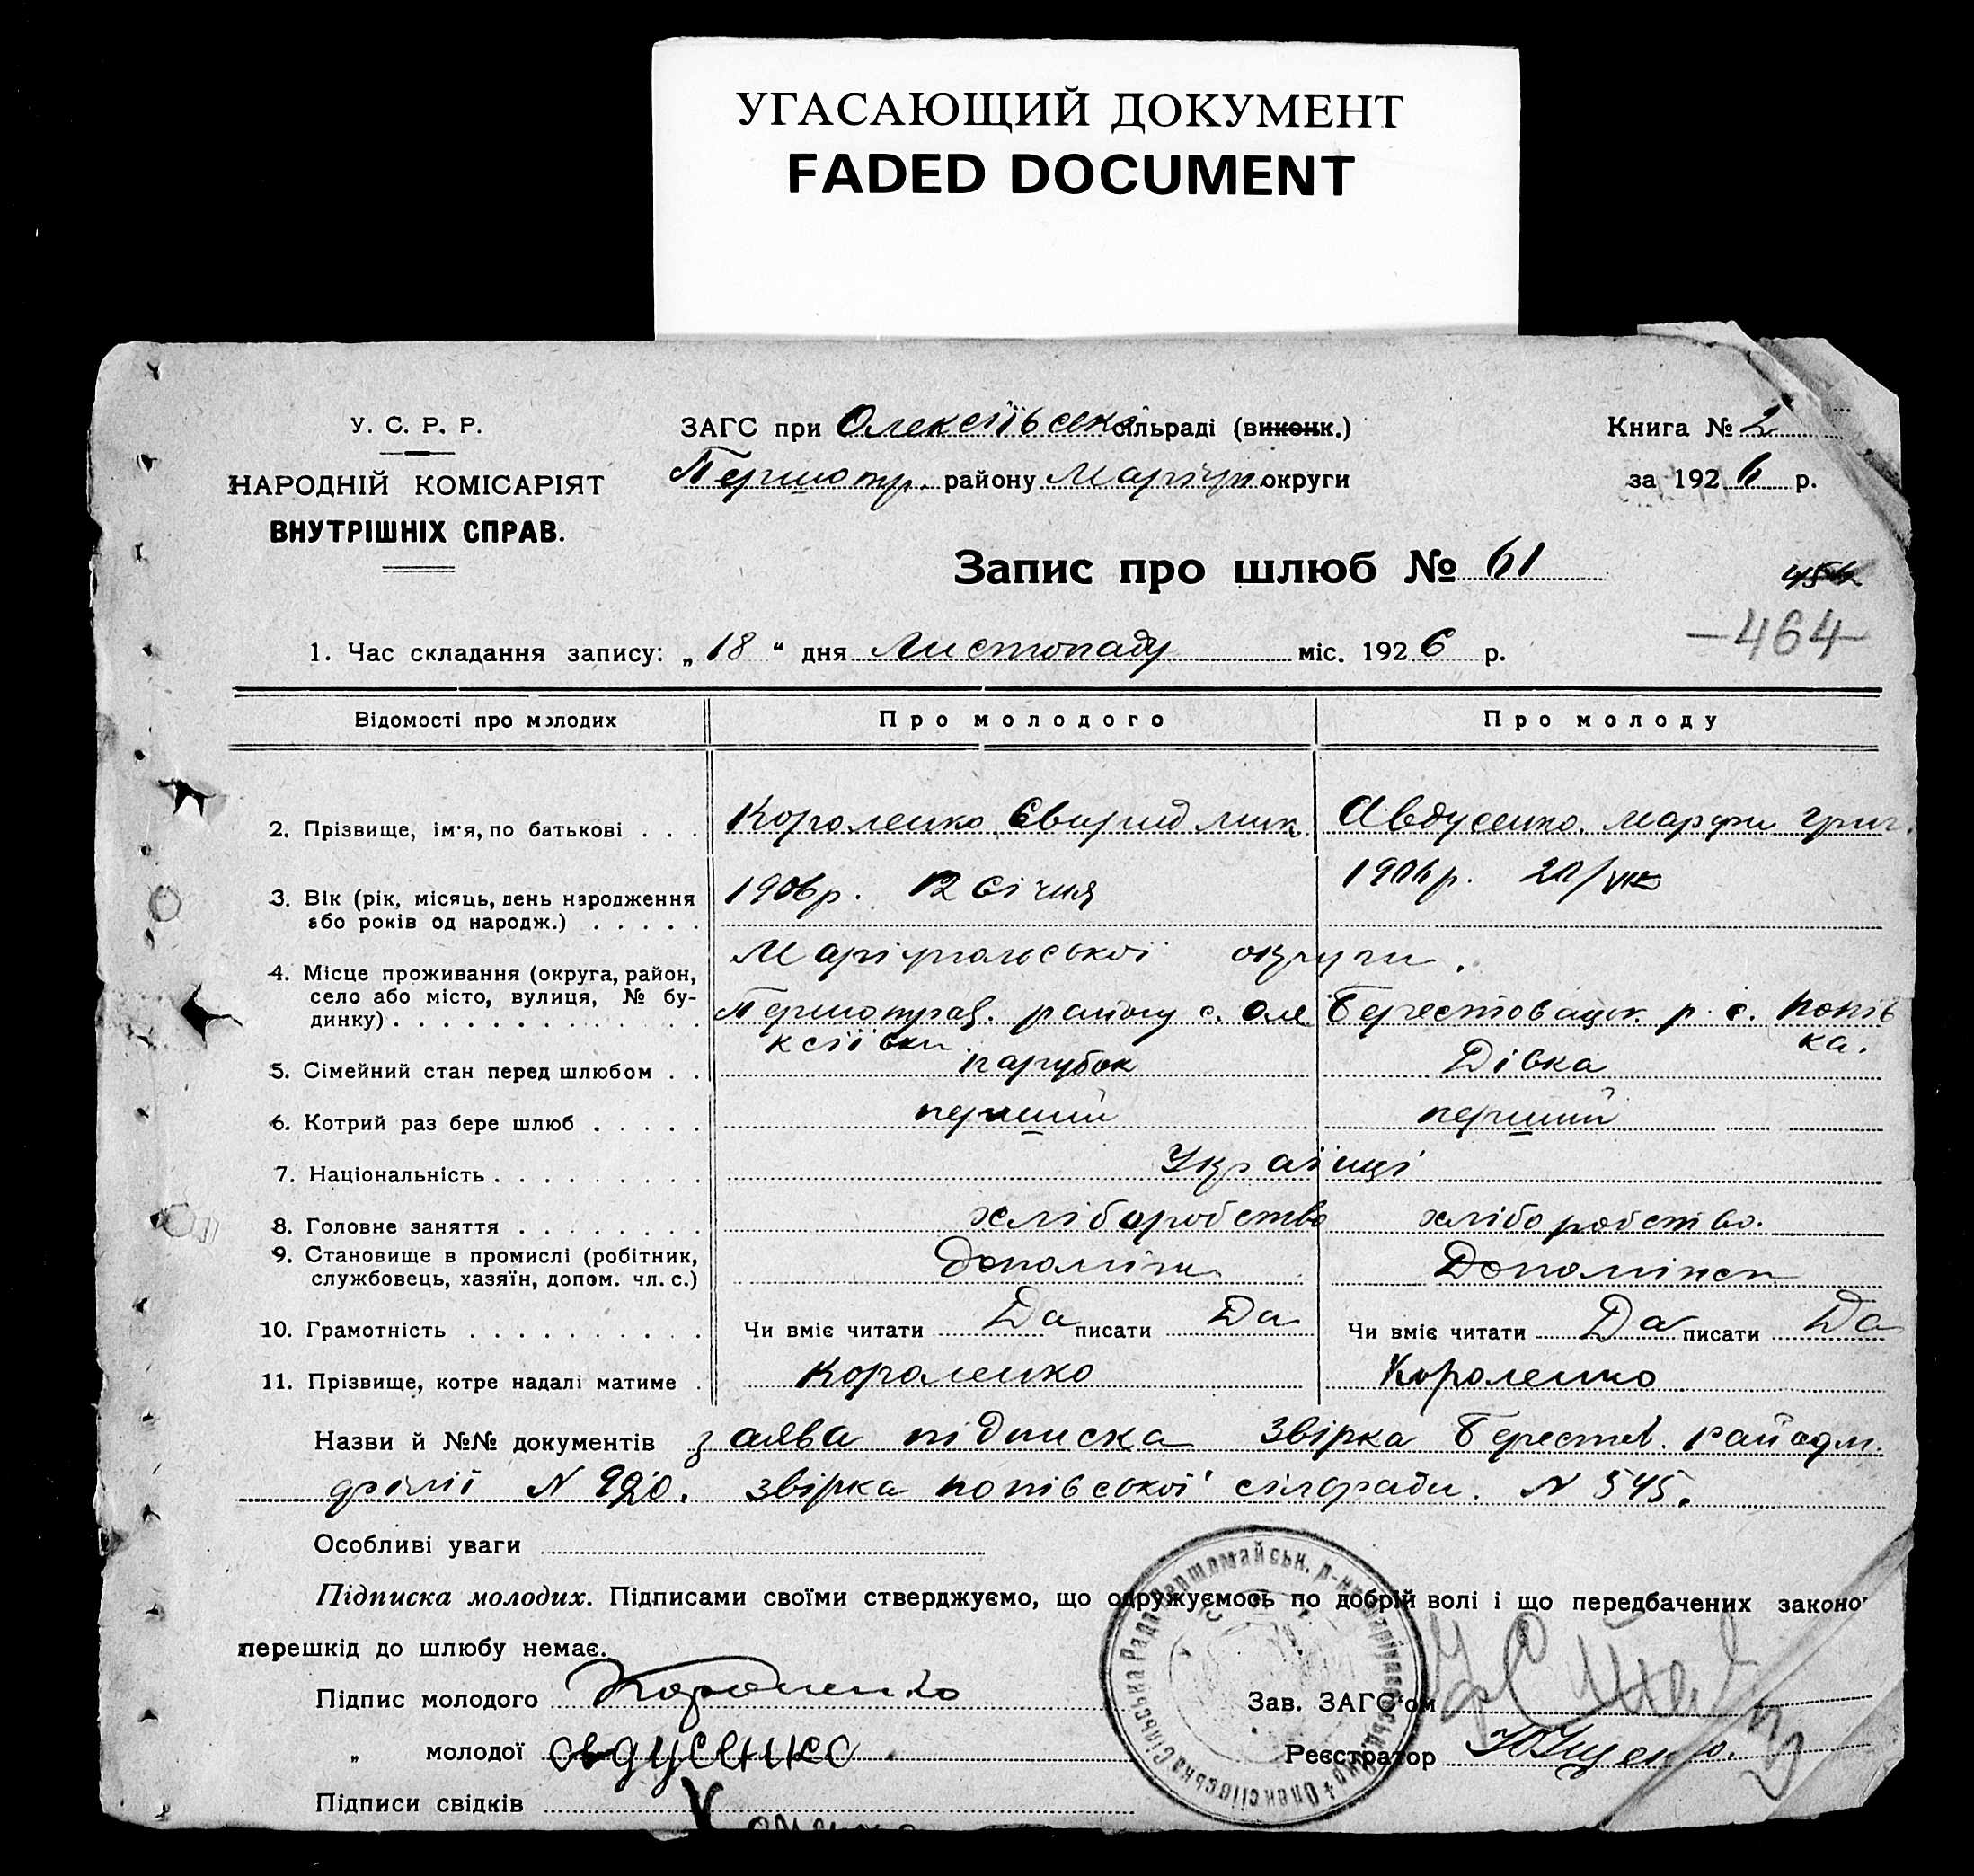 УГАСАЮЩИЙ ДОКУМЕНТ
FADED DOCUMENT
У. С. Р. Р.
НАРОДНІЙ КОМІСАРІЯТ
ВНУТРІШНІХ СПРАВ.
ЗАГС при Олексіївські сільраді (виконк.)
Першотр. району Маріуп. округи
Книга № 2
за 1926 р.
Запис про шлюб № 61
454
—464—
1. Час складання запису: „18“ дня Листопаду міс. 1926 р.
Відомості про молодих Про молодого Про молоду
2. Прізвище, ім'я, по батькові . . . Короленко Свирид Мик. Авдусенко Марфи Григ.
3. Вік (рік, місяць, день народження або років од народж.) . . . . . 1906р. 12 Січня 1906р. 20/
4. Місце проживання (округа, район, село або місто, вулиця, № будинку) . . . Маріупольської округи.
Першотрав. району с. Олексіївки Берестовецк. р. с. Попівка.
5. Сімейний стан перед шлюбом . . парубок Дівка
6. Котрий раз бере шлюб . . . . . перший перший
7. Національність . . . . . . . . . Українці
8. Головне заняття . . . . . . . . хліборобство хліборобство.
9. Становище в промислі (робітник, службовець, хазяїн, допом. чл. с.)
10. Грамотність . . . . . . . . . . Чи вміє читати Да писати Да Чи вміє читати Да писати Да
11. Прізвище, котре надалі матиме . Короленко Короленко
Назви й №№ документів заява підписка Звірка Берестов. райадм.
філії N звірка попівської сілоради. N 545.
Особливі уваги
Підписка молодих. Підписами своїми стверджуємо, що одружуємось по добрій волі і що передбачених законо
перешкід до шлюбу немає.
Підпис молодого Короленко
Зав. ЗАГС'ом
„ молодої Авдусенко.
Реєстратор
Підписи свідків
Олексіївська Сільська Рада Першомайськ. р-ну Маріупольськ.